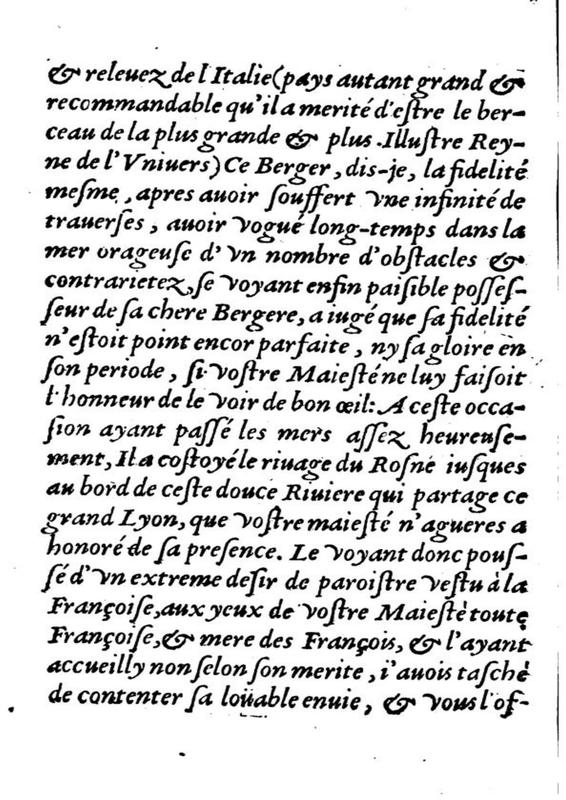 & releuez de l'Italie (pays autant grand &
recommandable qu'il a merité d'eſtre le ber-
ceau de la plus grande & plus Illuſtre Rey-
ne de l'Vniuers) Ce Berger, dis-je, la fidelité
meſme, apres auoir ſouffert vne infinité de
trauerſes, auoir vogué long-temps dans la
mer orageuſe d'vn nombre d'obſtacles &
contrarietez, ſe voyant enfin paiſible poſſeſ-
ſeur de ſa chere Bergere, a iugé que ſa fidelité
n'eſtoit point encor parfaite, ny ſa gloire en
ſon periode, ſi voſtre Maieſté ne luy faiſoit
l'honneur de le voir de bon œil: A ceſte occa-
ſion ayant paſſé les mers aſſez heureuſe-
ment, Il a coſtoyé le riuage du Roſne iuſques
au bord de ceſte douce Riuiere qui partage ce
grand Lyon, que voſtre maieſté n'agueres a
honoré de ſa preſence. Le voyant donc pouſ-
ſé d'vn extreme deſir de paroiſtre veſtu à la
Françoiſe, aux yeux de voſtre Maieſtè toute
Françoiſe, & mere des François, & l'ayant
accueilly non ſelon ſon merite, i'auois taſchè
de contenter ſa loüable enuie, & vous l'of-